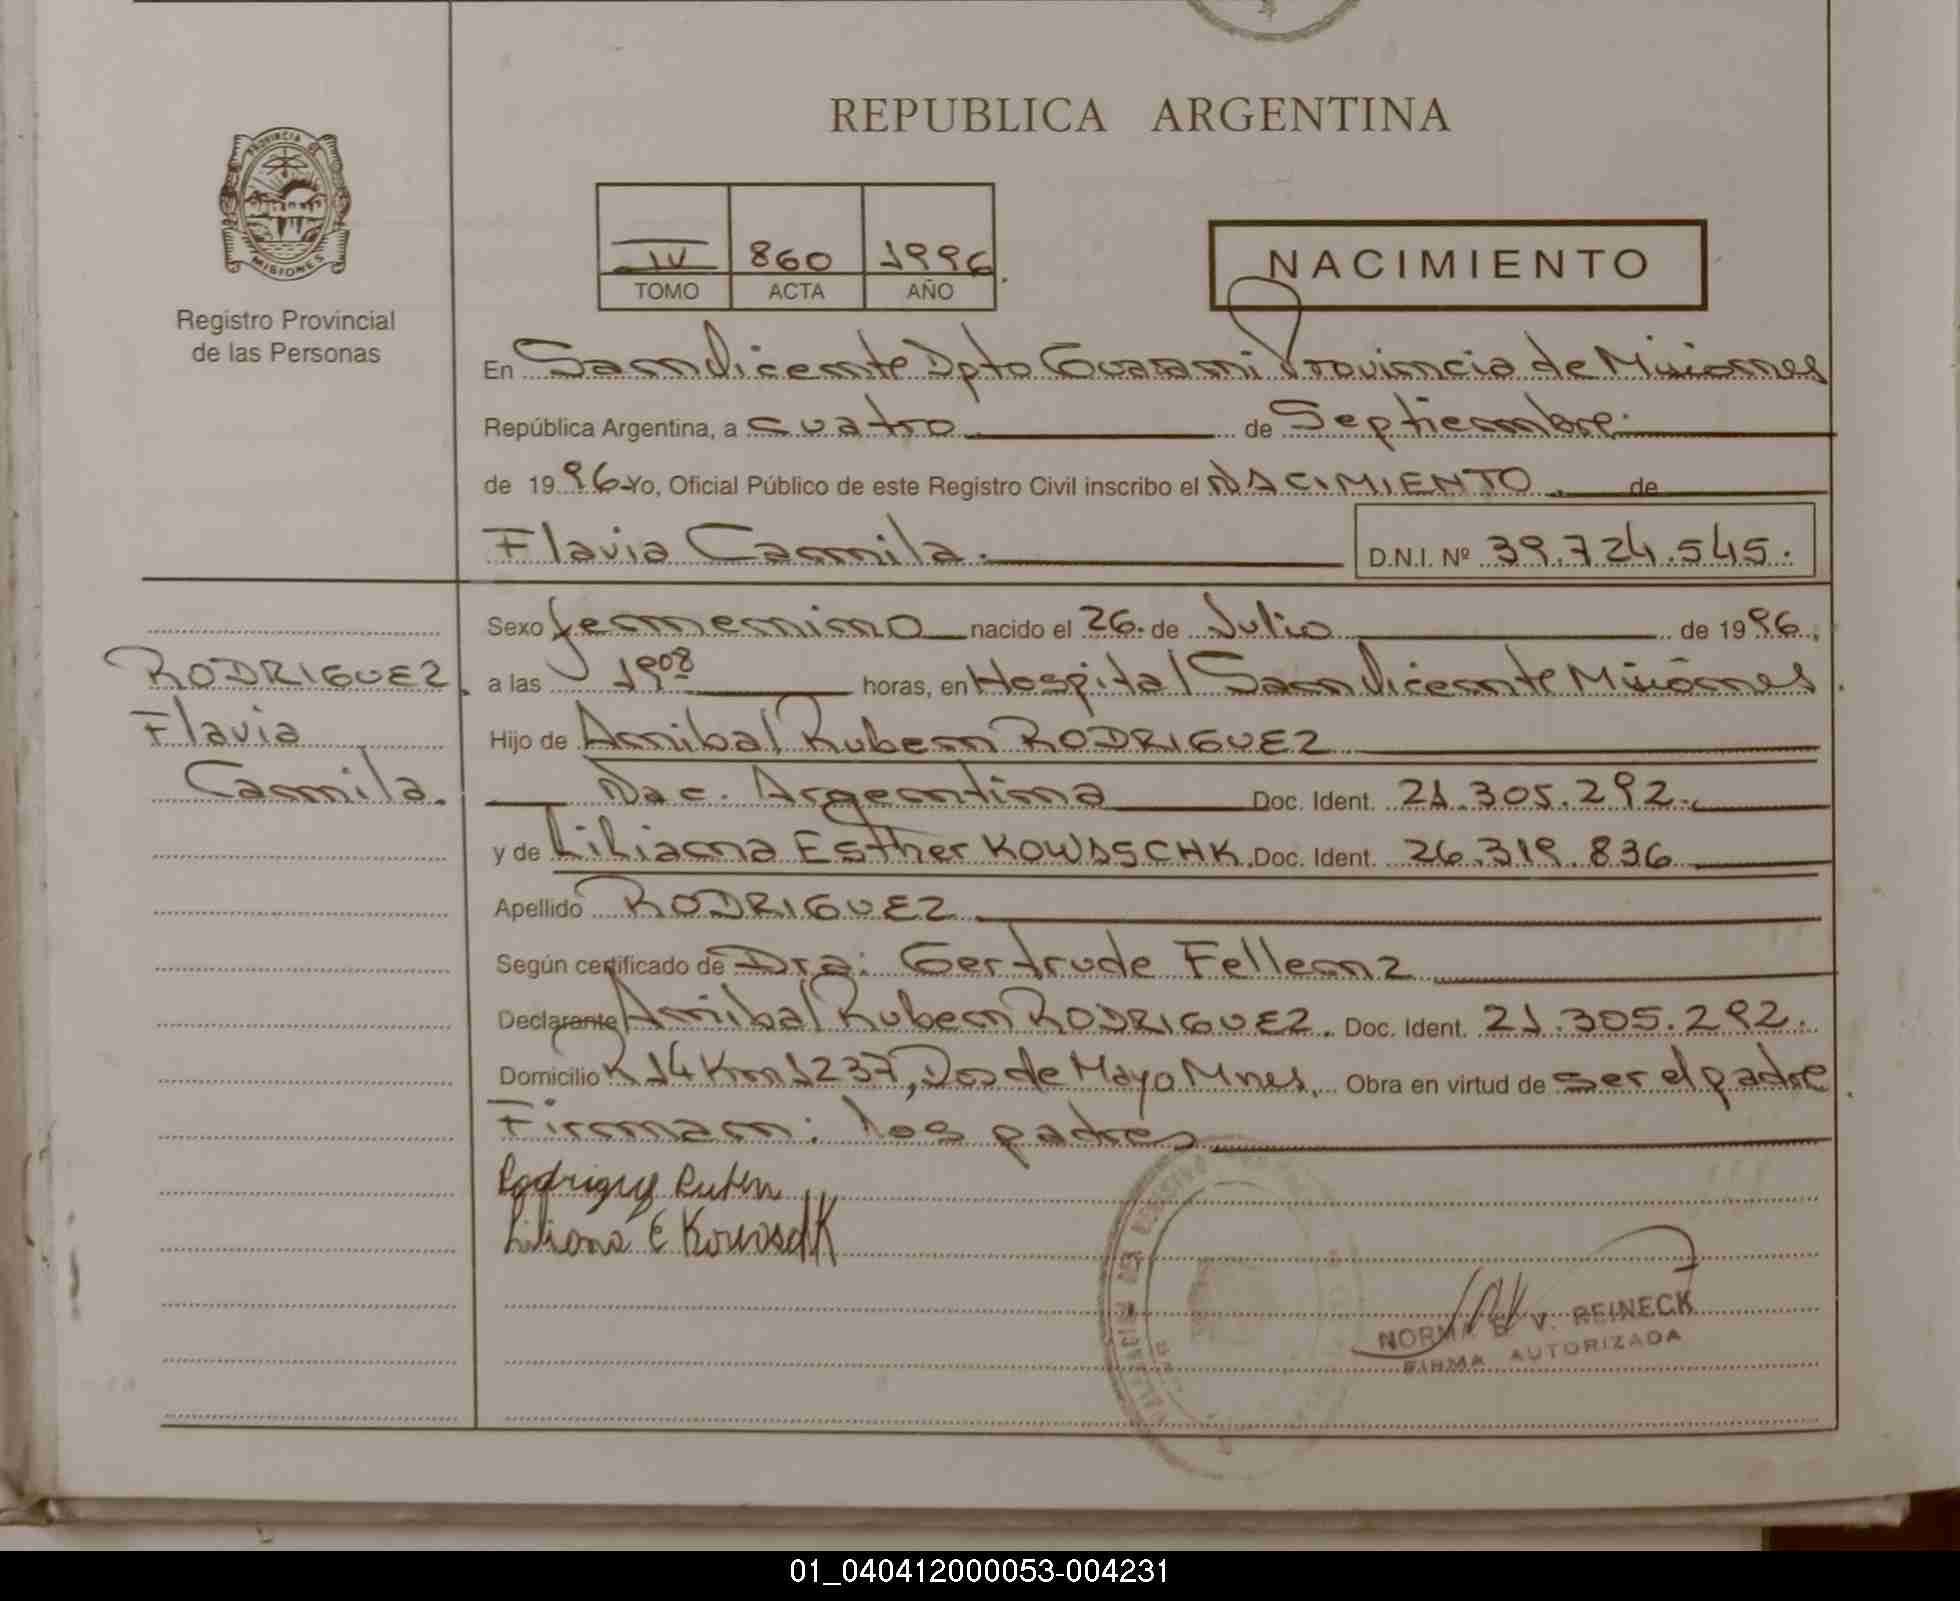 REPUBLICA ARGENTINA
PROVINCIA DE
MISIONES
Registro Provincial
de las Personas
IV 860 1996.
TOMO ACTA AÑO
NACIMIENTO
En San Vicente Dpto Guarani Provincia de Misiones
República Argentina, a cuatro de Septiembre.
de 1996 Yo, Oficial Público de este Registro Civil inscribo el NACIMIENTO de
Flavia Camila. D.N.I. Nº 39.724.545.
Sexo femenino nacido el 26. de Julio de 1996,
a las 19 08 horas, en Hospital San Vicente Misiones.
Hijo de Anibal Ruben RODRIGUEZ
Nac. Argentina Doc. Ident. 21.305.292.
y de Liliana Esther KOWASCHK. Doc. Ident. 26.319.836
Apellido RODRIGUEZ
Según certificado de Dra: Gertrude Fellenz
Declarante Anibal Ruben RODRIGUEZ. Doc. Ident. 21.305.292.
Domicilio R 14 Km 1237, Dos de Mayo Mnes. Obra en virtud de ser el padre.
Firman: los padres
RODRIGUEZ
Flavia
Camila.
Rodriguez Ruben
Liliana E Kowaschk
NORMA B. V. REINECK
FIRMA AUTORIZADA
01_040412000053-004231